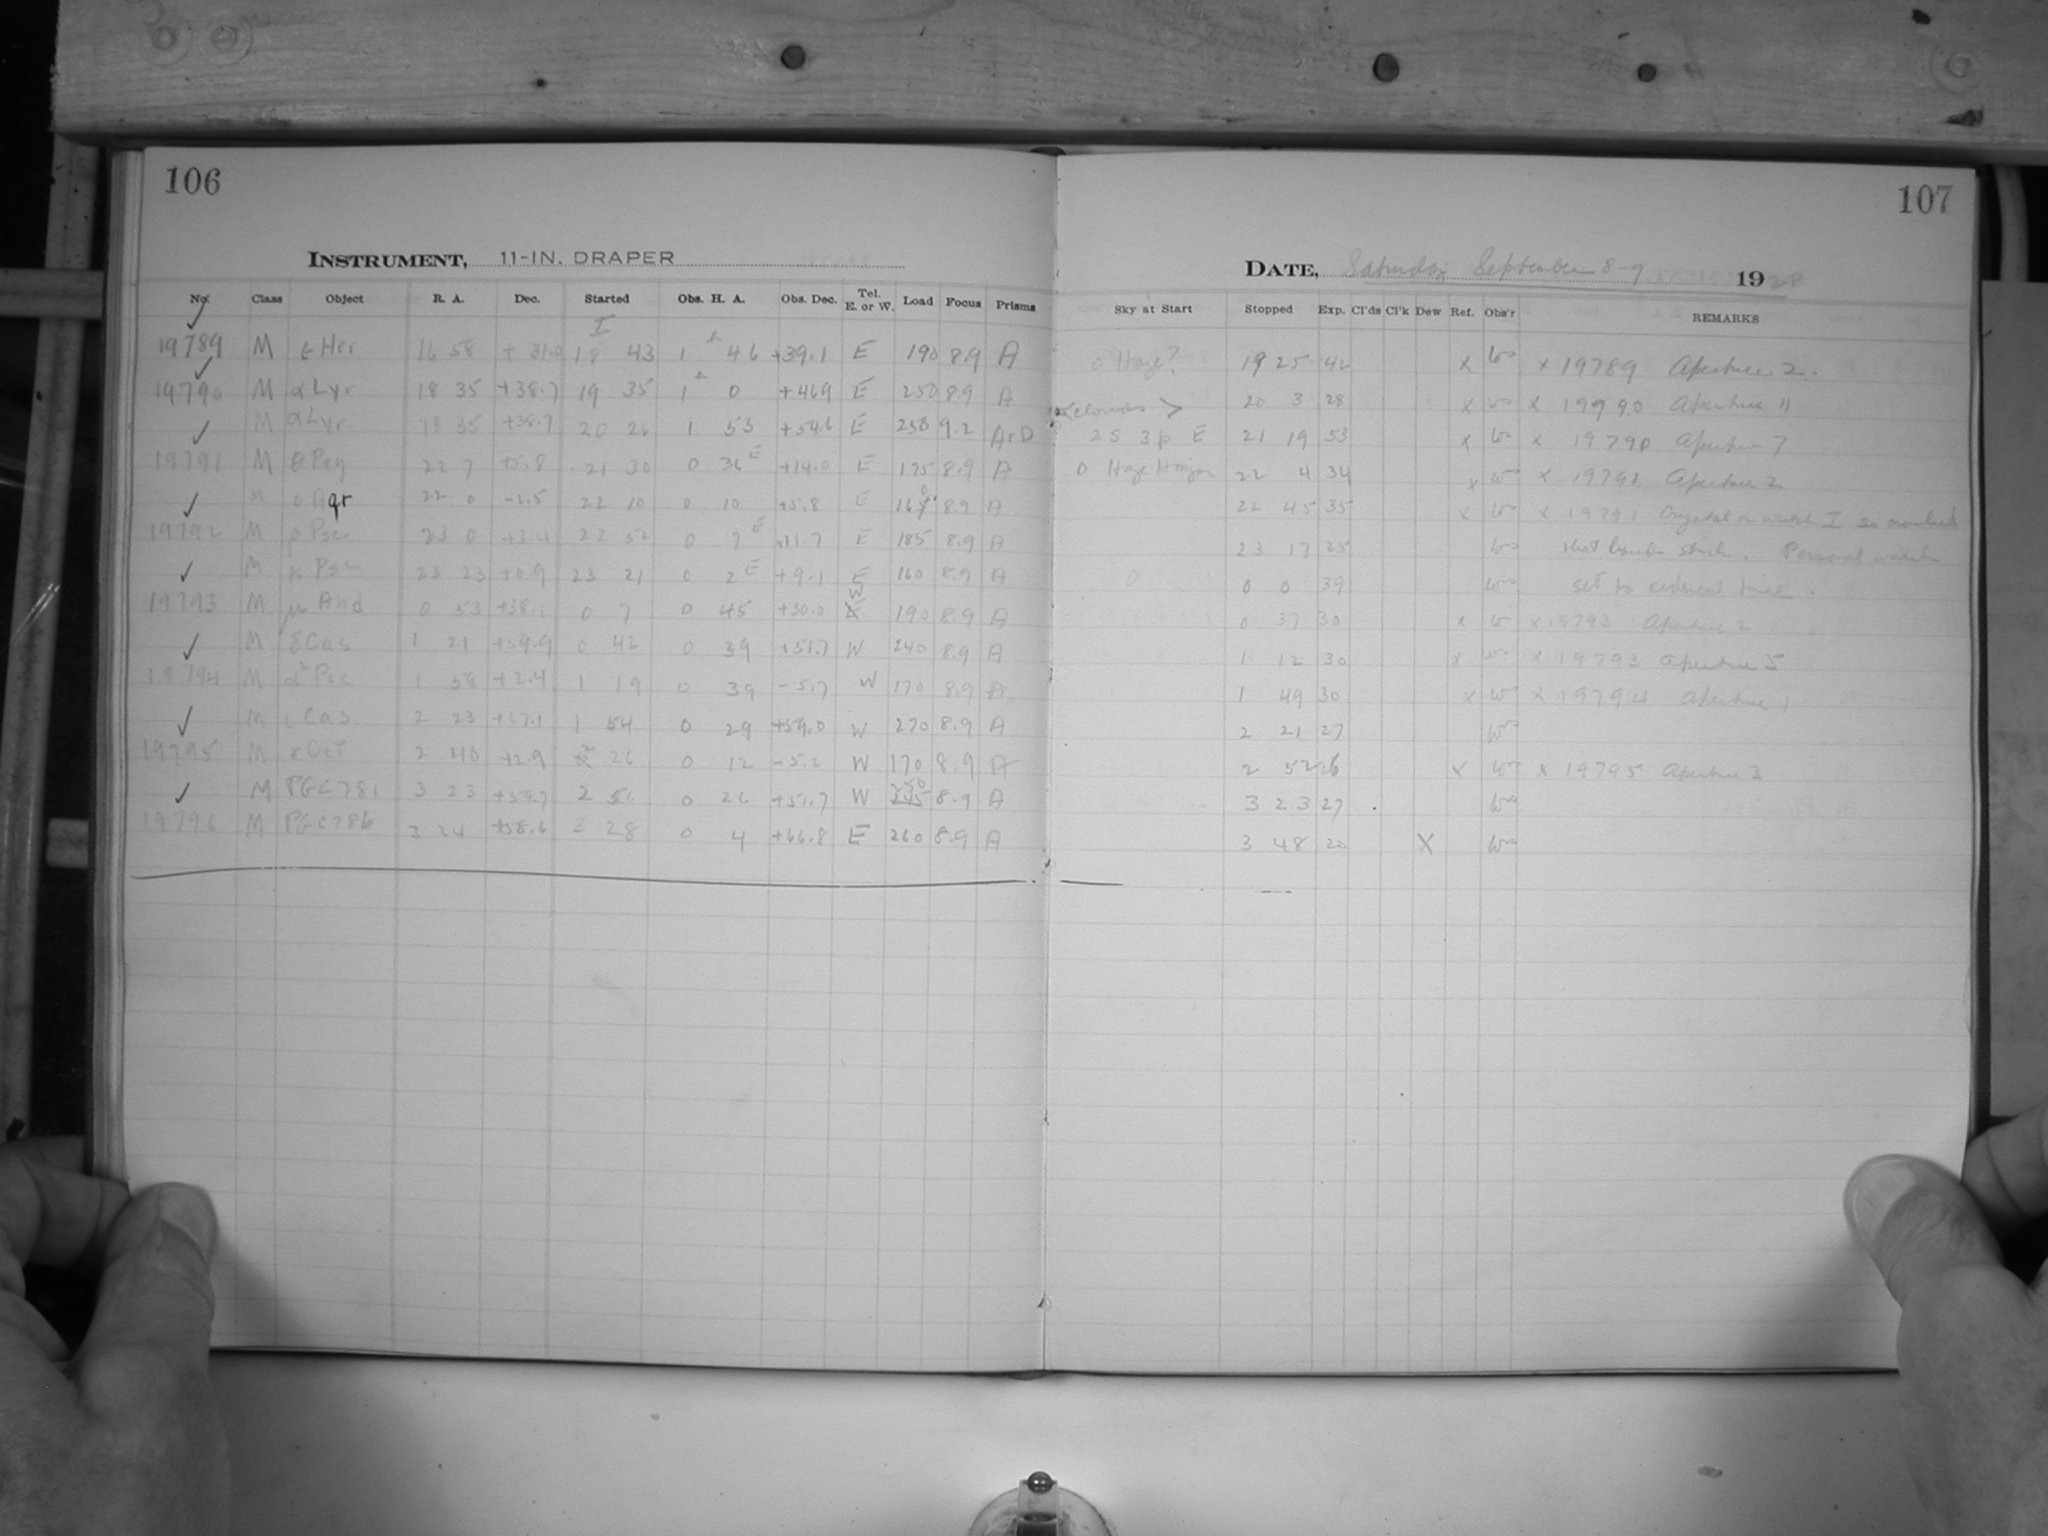 106
INSTRUMENT, 11-IN. DRAPER
No. Class Object R. A. Dec. Started Obs. H. A. Obs. Dec. Tel. E. or W. Load Focus Prisms
I
19789 M ε Her 16 58 + 31.0 18 43 1 46 +39.1 E 190 8.9 A
19790 M α Lyr 18 35 +38.7 19 35 1 0 +46.9 E 250 8.9 A
M α Lyr 18 35 +38.7 20 26 1 53 +54.6 E 250 9.2 A+D
19791 M θ Peg 22 7 +5.8 21 30 0 36 E +14.0 E 175 8.9 A
M o Aqr 22 0 -2.5 22 10 0 10 +5.8 E 160 8.9 A
19792 M β Psc 23 0 +3.4 22 52 0 7 E +11.7 E 185 8.9 A
M κ Psc 23 23 +0.9 23 21 0 2 E +9.1 E 160 8.9 A
19793 M μ And 0 53 +38.1 0 7 0 45 +30.0 W 190 8.9 A
M δ Cas 1 21 +59.9 0 42 0 39 +51.7 W 240 8.9 A
19794 M α² Psc 1 58 +2.4 1 19 0 39 -5.7 W 170 8.9 A
M ι Cas 2 23 +67.1 1 54 0 29 +59.0 W 270 8.9 A
19795 M γ Cet 2 40 +2.9 2 26 0 12 -5.2 W 170 8.9 A
M PGC 781 3 23 +59.7 2 56 0 26 +51.7 W 250 8.9 A
19796 M PGC 786 3 24 +58.6 3 28 0 4 +66.8 E 260 8.9 A
107
DATE, Saturday September 8-9 1928
Sky at Start Stopped Exp. Cl'ds Cl'k Dew Ref. Obs'r REMARKS
0 Haze? 19 25 42 x x 19789 Aperture 2.
<clouds> 20 3 28 x x 19790 Aperture 11
25 3p E 21 19 53 x x 19790 Aperture 7
0 Haze Horizon 22 4 34 x x 19791 Aperture 2
22 45 35 x x 19791 Crystal on watch I so
23 17 25 that hands stuck. Personal watch
0 0 0 39 set to sidereal time.
0 37 30 x x 19793 Aperture 2
1 12 30 x x 19793 Aperture 5
1 49 30 x x 19794 Aperture 1
2 21 27
2 52 26 x x 19795 Aperture 3
3 23 27
3 48 20 X